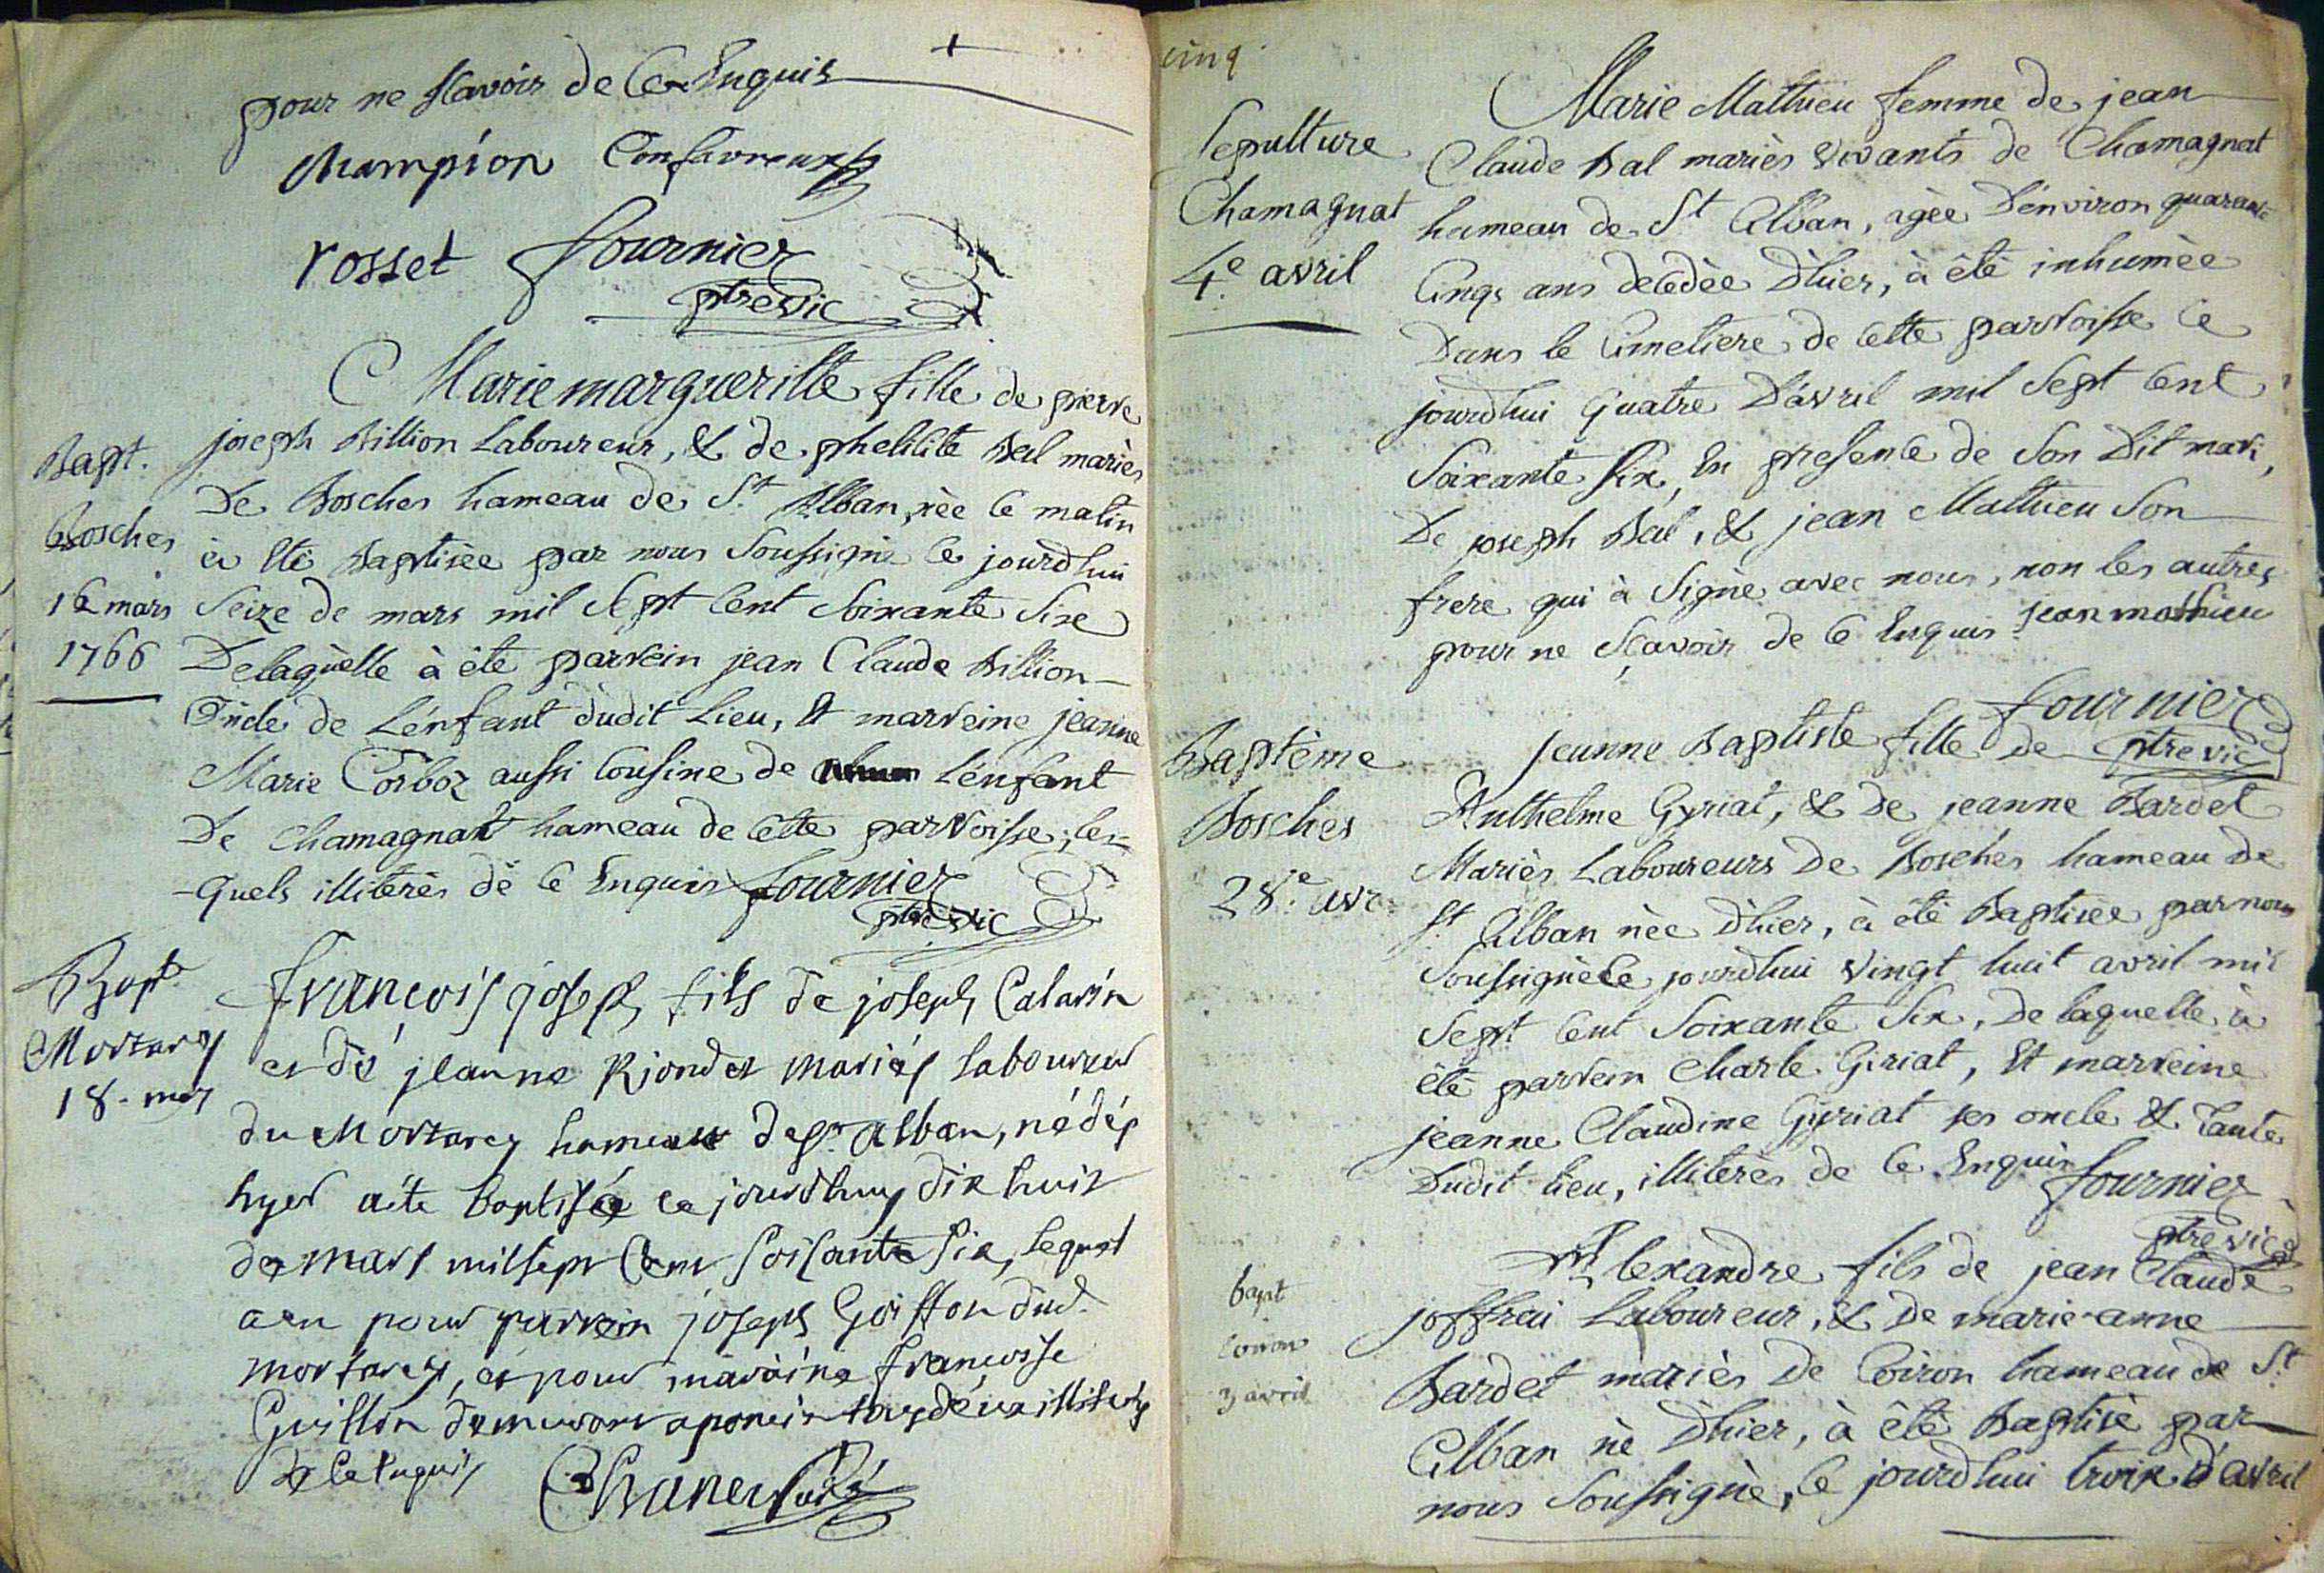 pour ne scavoir de ce Enquis
Champion Confavreux
rosset fournier
ptre vic
Marie margueritte fille de pierre
joseph Billion Laboureur, & de phelicité Bal mariès
Bapt.
De Bosches hameau de St. Alban, nèe ce matin
Bosches
à été Baptisèe par nous Soussignè ce jourdhui
16 mars
Seize de mars mil Sept Cent Soixante Six
1766
De laquelle à été parrein jean Claude Billion
Oncle de L'énfant dudit Lieu, Et marreine jeanne
Marie Corboz aussi Cousine de L'énfant
De Chamagnat hameau de Cette parroisse, les-
-Quels illiterès de ce Enquis fournier
ptre vic
Bapt.
françois joseph fils de joseph Calarin
Mortarey
et de jeanne Riondet mariés laboureur
18. mars
du Mortarey hameau de St. alban, né dés
hyer a été baptisé ce jourdhuy dix huit
de mars mil sept Cent soisante Six, lequel
a eu pour parrein joseph Goiffon dud.
mortarey, et pour maraine françoise
Guillon demeurant a poncin tous deux illiterés
de ce Enquis
cinq
Marie Mathieu femme de jean
Sepulture
Claude Bal mariès Vivants de Chamagnat
Chamagnat
hameau de St Alban, agèe D'énviron quarante
4e. avril
Cinqs ans decedèe D'hier, à été inhumèe
Dans le Cimetiere de Cette parroisse Ce
jourdhui Quatre D'avril mil Sept Cent
Soixante Six, En presence de Son Dit mari,
De joseph Bal, & jean Mathieu Son
frere qui à Signè avec nous, non les autres
pour ne Sçavoir de ce Enquis jean mathieu
fournier
Baptème
jeanne Baptiste fille De ptre vic
Bosches
Anthelme Gyriat, & De jeanne Bardet
Mariès Laboureurs De Boschés hameau De
28e. avr.
St. Alban nèe D'hier, à été Baptisèe par nous
Soussignè Ce jourdhui Vingt huit avril mil
Sept Cent Soixante Six, De laquelle à
été parrein Charle Giriat, Et marreine
jeanne Claudine Gyriat ses oncle & Tante
Dudit lieu, illiterès de ce Enquis fournier
ptre vic
Alexandre fils de jean Claude
bapt
joffrai Laboureur, & De marie-anne
coiron
Bardet mariès De Coiron hameau de St.
3 avril
Alban nè D'hier, à été Baptisè par
nous Soussignè, Ce jourdhui trois D'avril